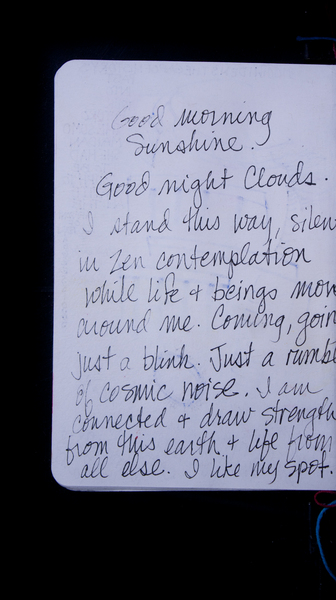 Good morning
Sunshine.
Good night Clouds.
I stand this way, silen
in Zen contemplation
while life + beings mov
around me. Coming, goin
just a blink. Just a rumbl
of cosmic noise. I am
connected + draw strength
from this earth + life from
all else. I like my spot.